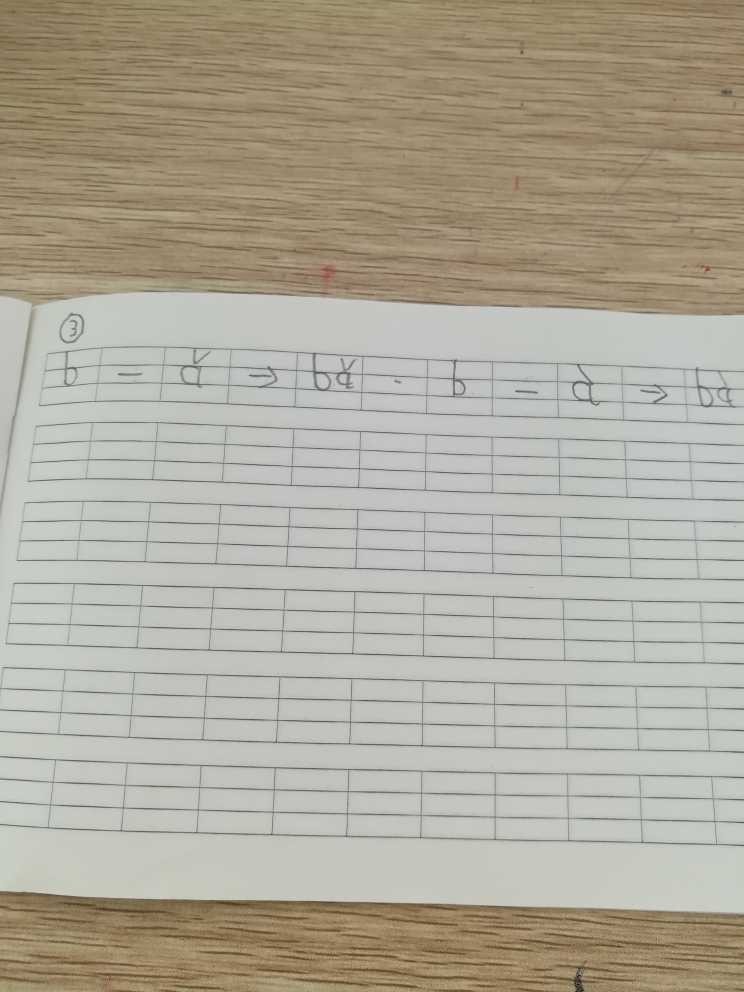 ③
b — ǎ → bǎ . b — à → bà